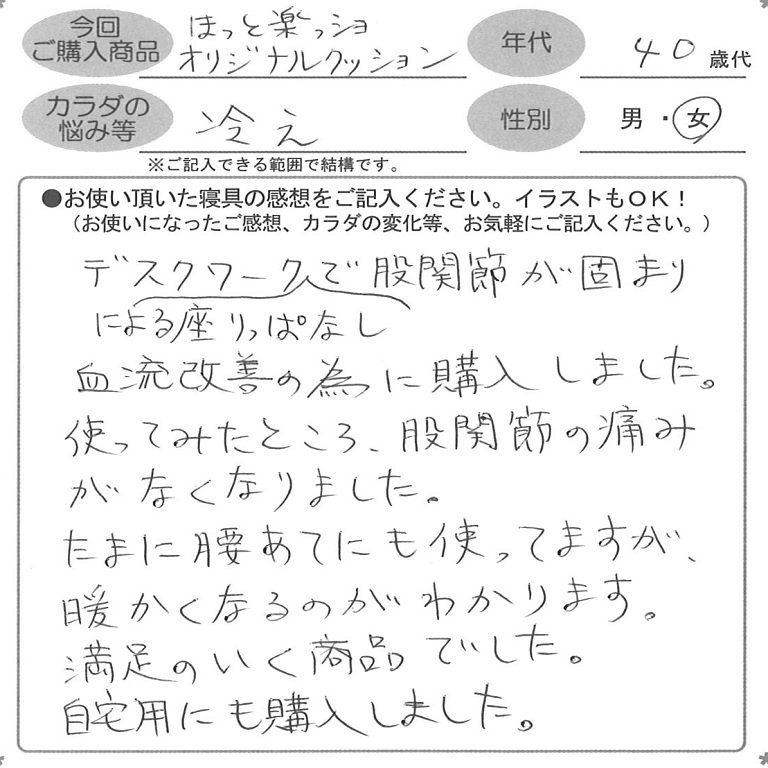 今回
ご購入商品
ほっと楽っショ
オリジナルクッション
年代
40歳代
カラダの
悩み等
冷え
性別
男・女
※ご記入できる範囲で結構です。
●お使い頂いた寝具の感想をご記入ください。イラストもOK!
(お使いになったご感想、カラダの変化等、お気軽にご記入ください。)
デスクワークで股関節が固まり
による座りっぱなし
血流改善の為に購入しました。
使ってみたところ、股関節の痛み
がなくなりました。
たまに腰あてにも使ってますが、
暖かくなるのがわかります。
満足のいく商品でした。
自宅用にも購入しました。